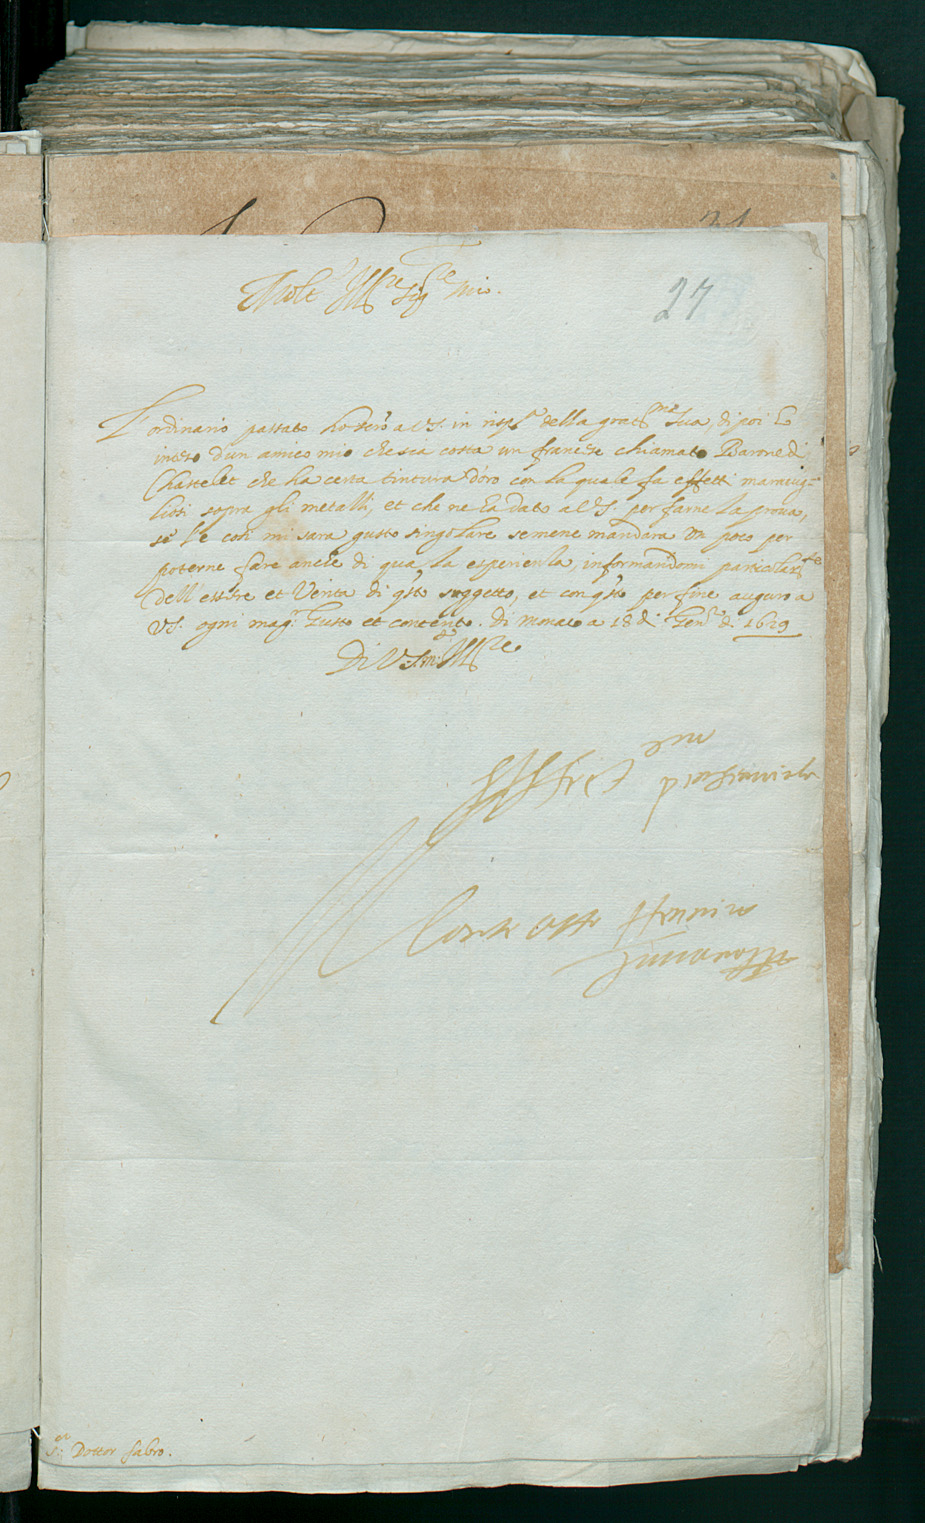 Molt Ill.re Sig.re mio.
27
L'ordinario passato ho scrõ a V.S. in risp.ta della grat.ma sua, di poi ho
inteso d'un amico mio che sia costa un francese chiamato Barone di
Chastelet che ha certa tintura d'oro con la quale fa effetti maravig-
liosi sopra gli metalli, et che ne ha dato a V.S. per farne la prova,
se l'è cosi mi sara gusto singolare se me ne mandara un poco per
poterne fare anche di qua la esperienza, informandomi particolar.te
dell'essere et verita di q.sto suggetto, et con q.sto per fine auguro a
V.S. ogni mag.r gusto et contento. Di Monaco a 18 di Gen.ro di 1629
Di V.S. m.to Ill.re
Aff.
per servirla
Conte Otto Henrico
S.or Dottor fabro.